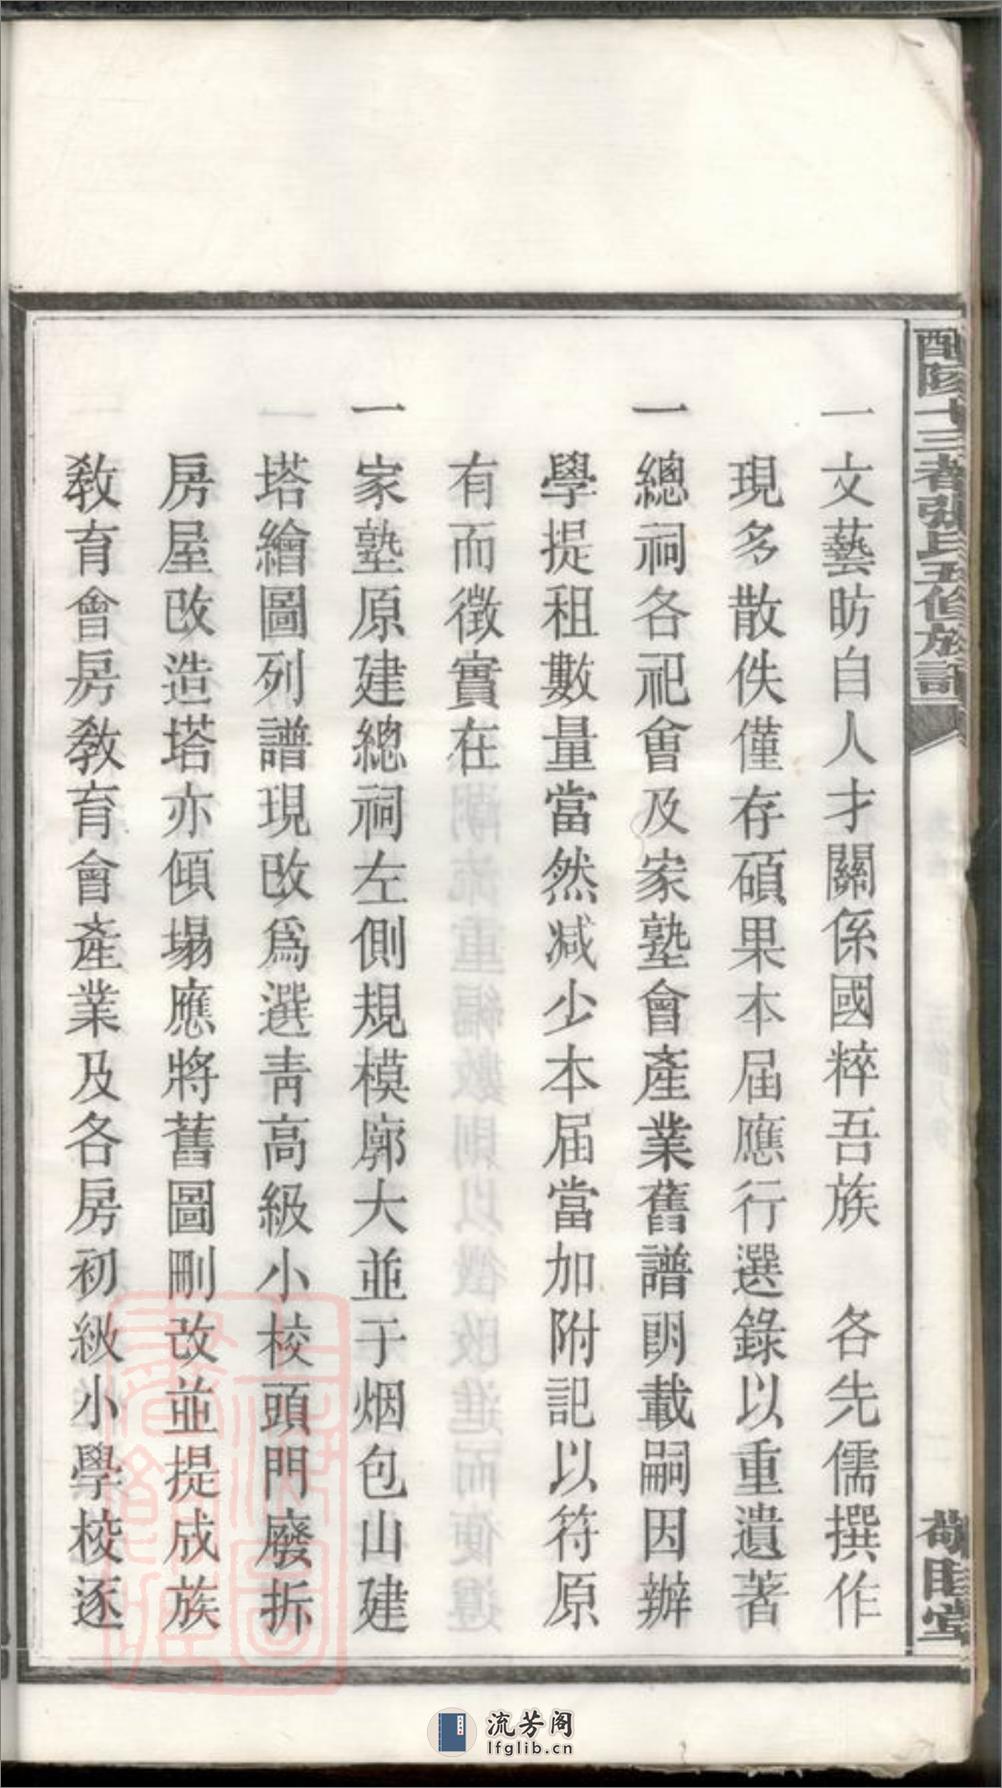 一文藝昉自人才關係國粹吾族　各先儒撰作
現多散佚僅存碩果本届應行選錄以重遺著
一總祠各祀會及家塾會產業舊譜朗載嗣因辦
學提租數量當然减少本届當加附記以符原
有而徵實在
一家塾原建總祠左側規模廓大並于烟包山建
塔繪圖列譜現改爲選青高級小校頭門廢拆
房屋改造塔亦傾塌應將舊圖刪改並提成族
敎育會房敎育會產業及各房初級小學校逐
流芳阁
lfglib.cn